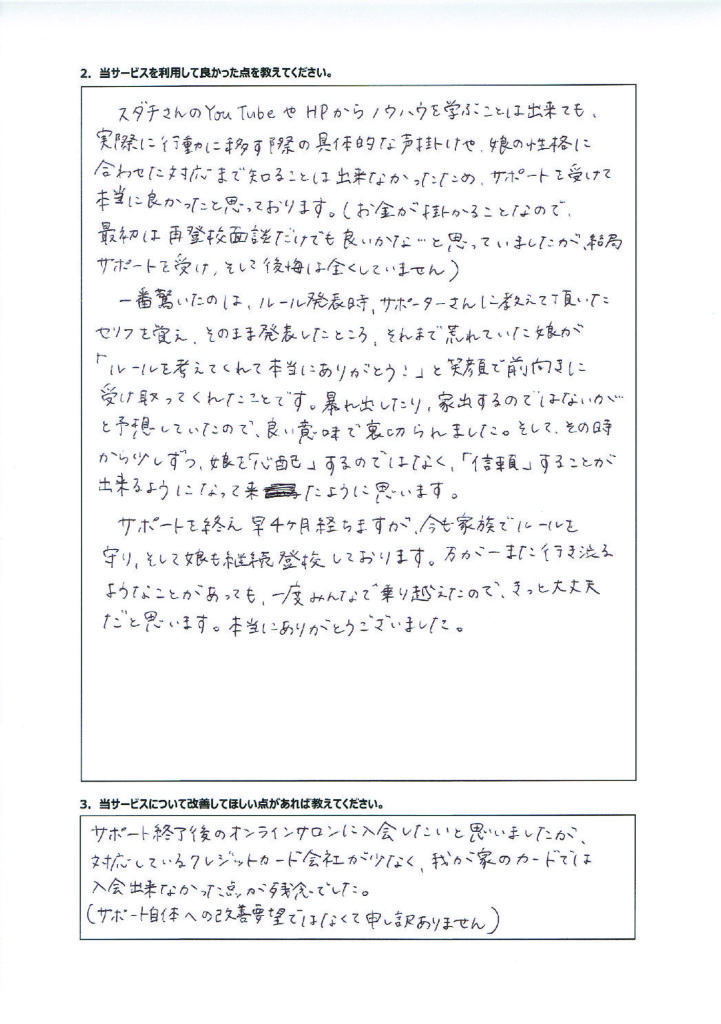 2. 当サービスを利用して良かった点を教えてください。
スダチさんのYouTubeやHPからノウハウを学ぶことは出来ても、
実際に行動に移す際の具体的な声掛けや、娘の性格に
合わせた対応まで知ることは出来なかったため、サポートを受けて
本当に良かったと思っております。(お金が掛かることなので、
最初は再登校面談だけでも良いかな…と思っていましたが、結局
サポートを受け、そして後悔は全くしていません)
一番驚いたのは、ルール発表時、サポーターさんに教えて頂いた
セリフを覚え、そのまま発表したところ、それまで荒れていた娘が
「ルールを考えてくれて本当にありがとう!」と笑顔で前向きに
受け取ってくれたことです。暴れ出したり、家出するのではないか…
と予想していたので、良い意味で裏切られました。そして、その時
から少しずつ、娘を「心配」するのではなく、「信頼」することが
出来るようになって来たように思います。
サポートを終え早4ヶ月経ちますが、今も家族でルールを
守り、そして娘も継続登校しております。万が一また行き渋る
ようなことがあっても、一度みんなで乗り越えたので、きっと大丈夫
だと思います。本当にありがとうございました。
3. 当サービスについて改善してほしい点があれば教えてください。
サポート終了後のオンラインサロンに入会したいと思いましたが、
対応しているクレジットカード会社が少なく、我が家のカードでは
入会出来なかった点が残念でした。
(サポート自体への改善要望ではなくて申し訳ありません)